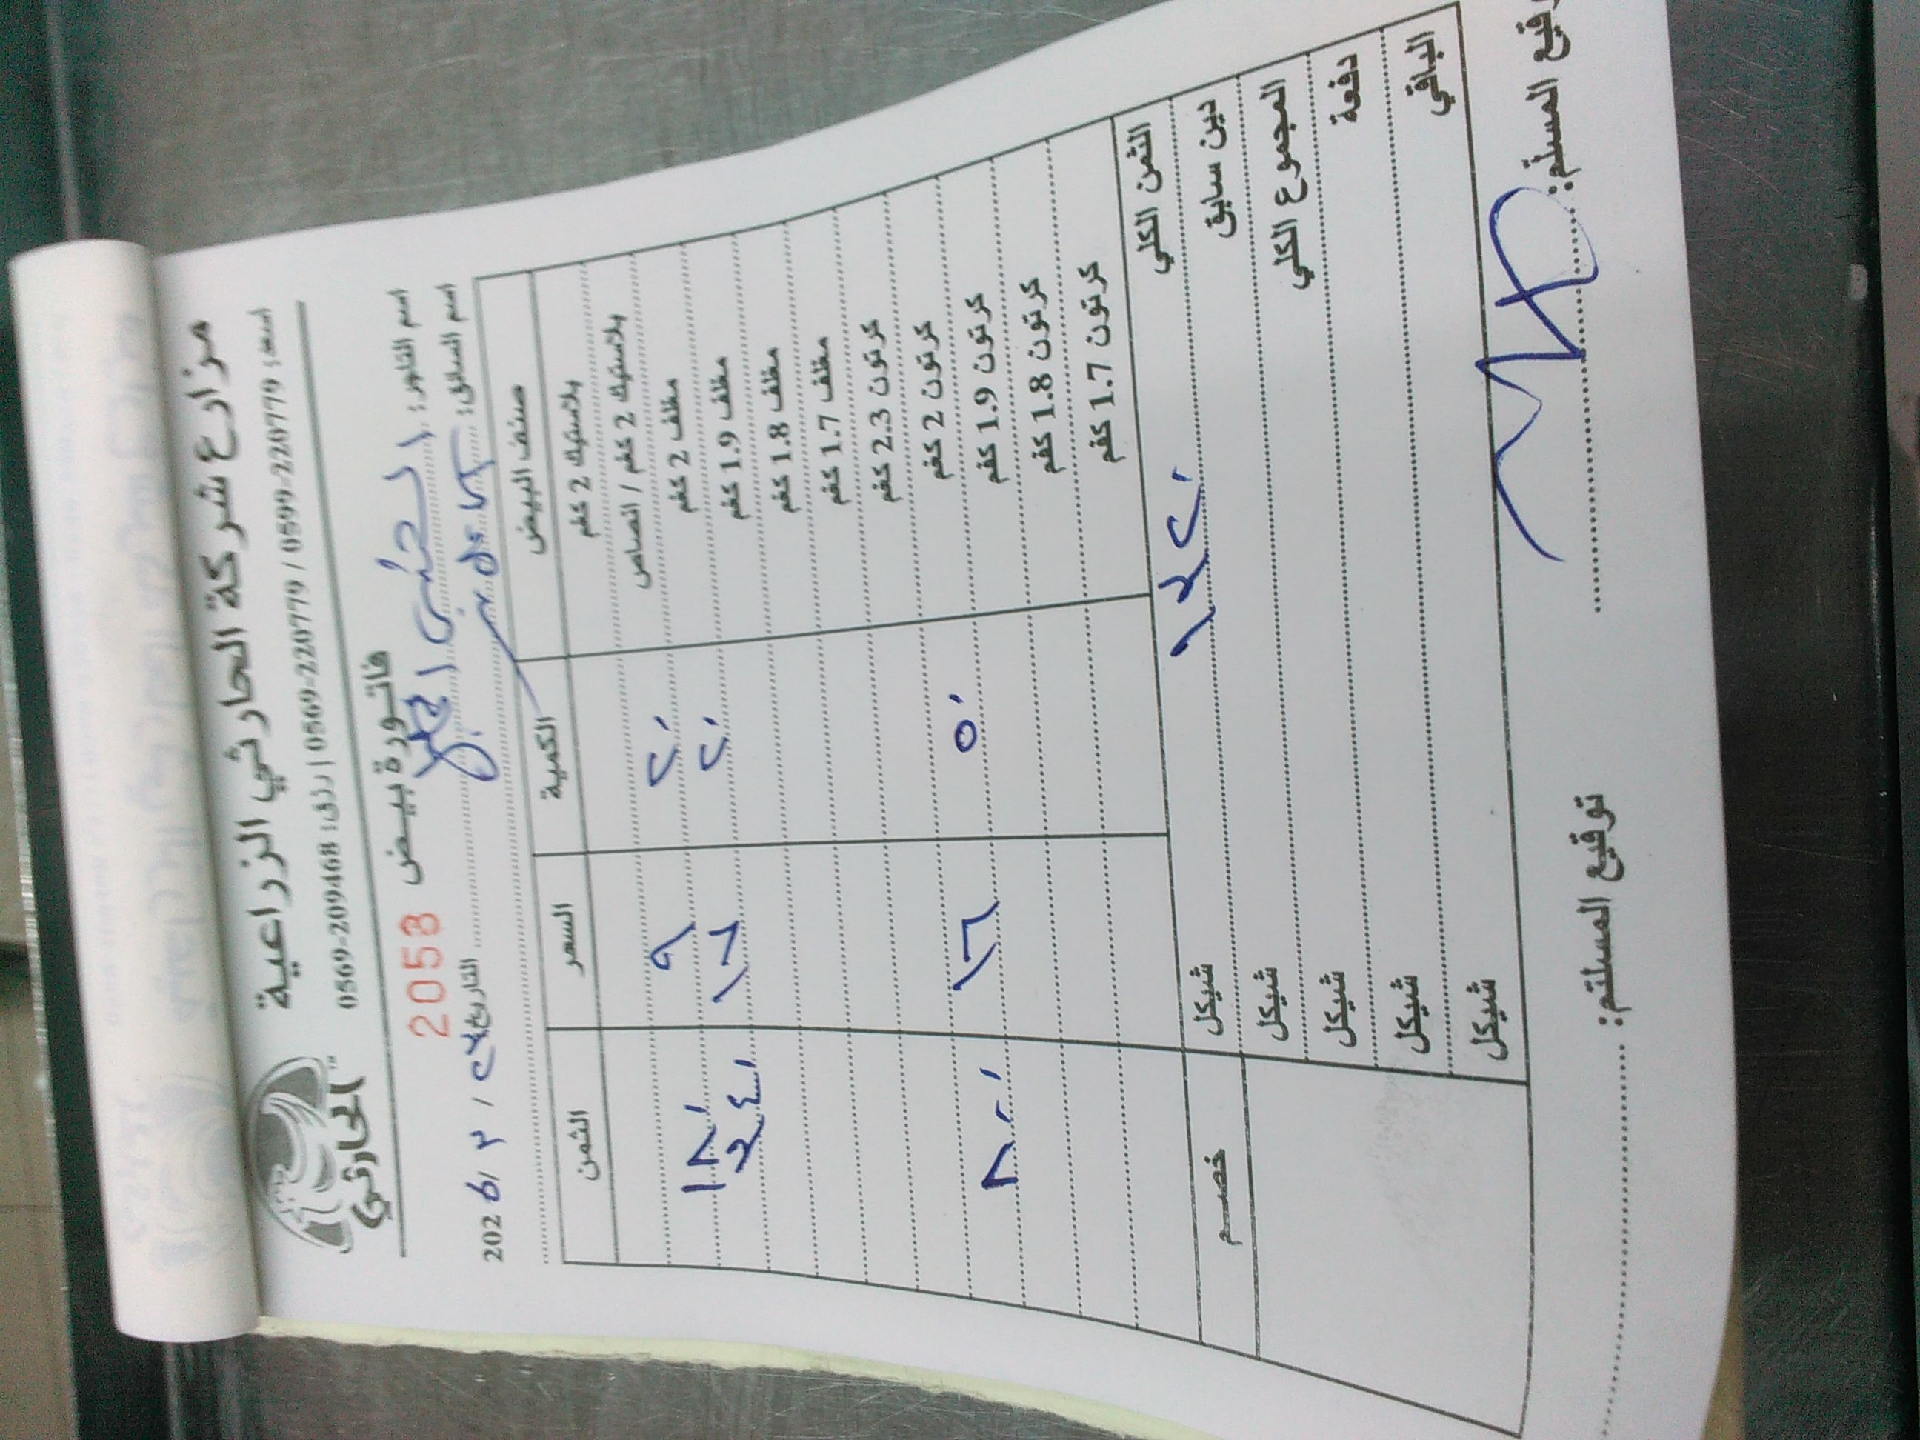 مزارع شركة الحارثي الزراعية
الحارثي
اسعد: 0599-220779 / 0569-220779 | رزق: 0569-209468
فاتورة بيض 2058
اسم التاجر:
التاريخ ٢ / 2026
اسم السائق:
صنف البيض الكمية السعر الثمن
بلاستيك 2 كغم
بلاستيك 2 كغم / انصاص
مغلف 2 كغم ٢٠ ٩ ١٨٠
مغلف 1.9 كغم ٢٠
مغلف 1.8 كغم
مغلف 1.7 كغم
كرتون 2.3 كغم
كرتون 2 كغم
كرتون 1.9 كغم ٥٠ ١٦ ٨٠٠
كرتون 1.8 كغم
كرتون 1.7 كغم
الثمن الكلي شيكل خصم
دين سابق شيكل
المجموع الكلي شيكل
دفعة شيكل
الباقي شيكل
المسلّم: توقيع المستلم: